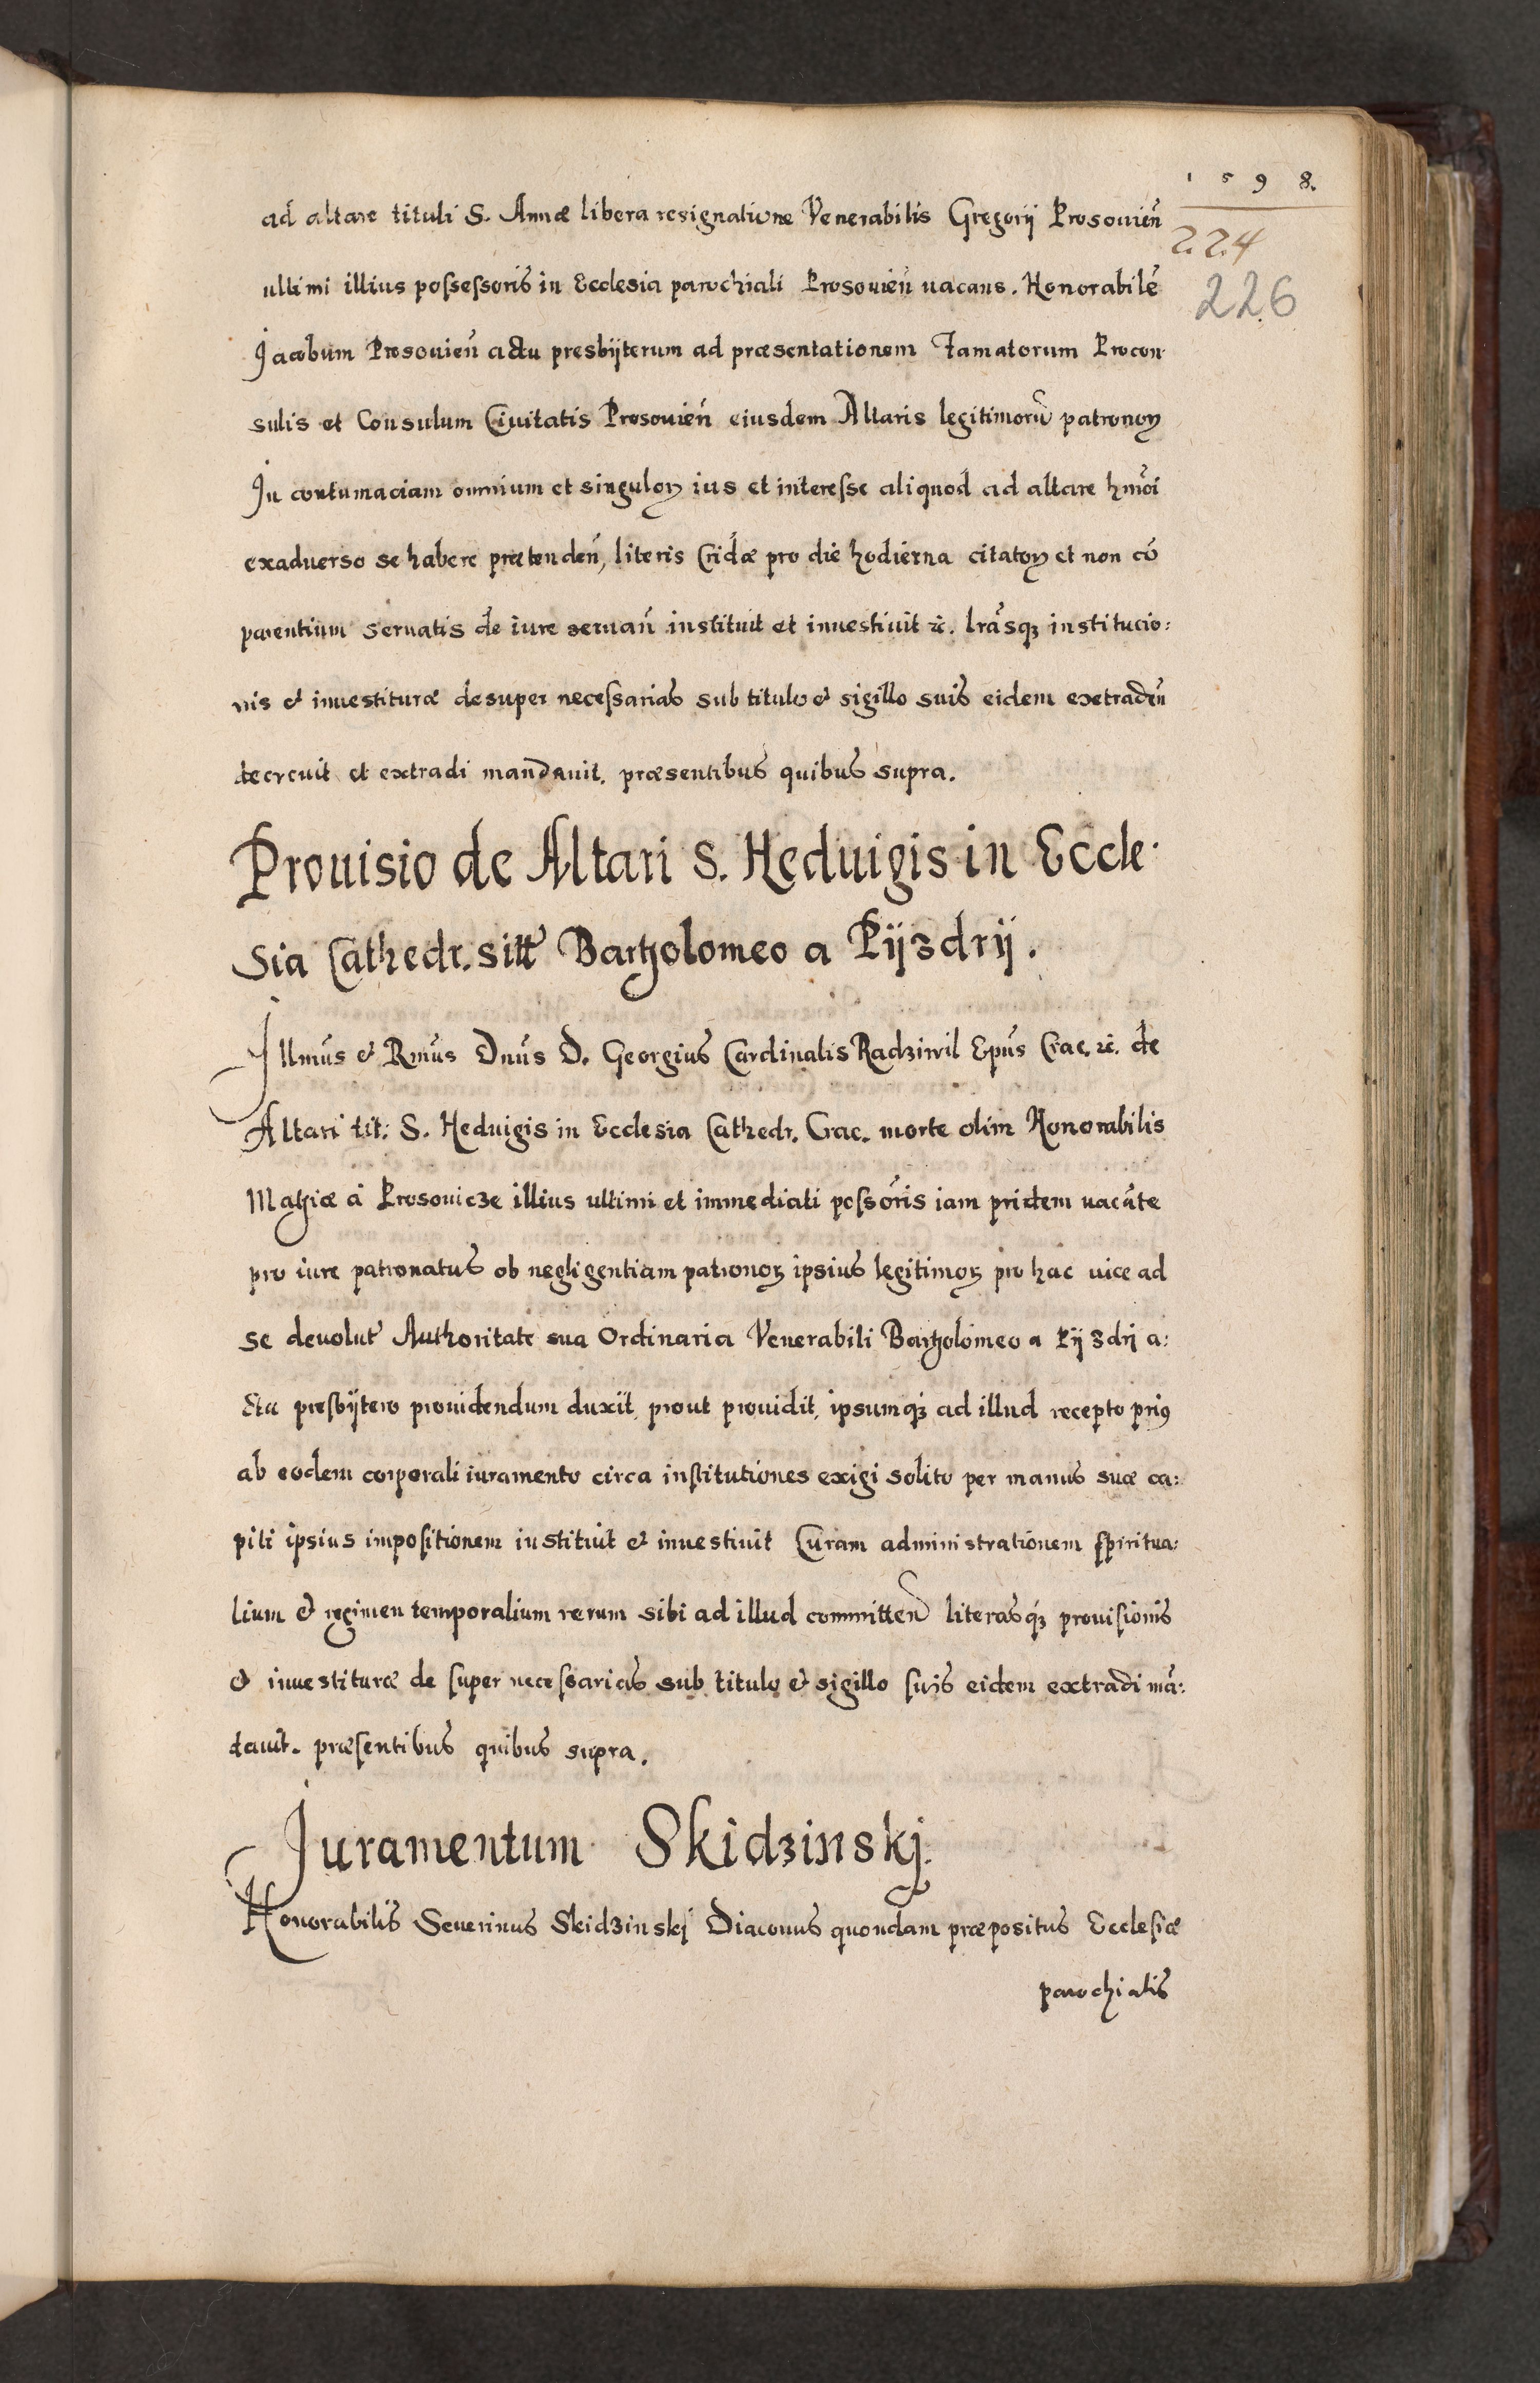 1598.
224
226
ad altare tituli S. Annæ libera resignatione Venerabilis Gregorij Prosouien̄
ultimi illius possessoris in Ecclesia parochiali Prosouien̄ uacans. Honorabilē
Jacobum Prosouien̄ actu presbijterum ad præsentationem Famatorum Procon-
sulis et Consulum Ciuitatis Prosouien̄ eiusdem Altaris legitimorū patronoꝝ
In contumaciam omnium et singuloꝝ ius et interesse aliquod ad altare hmōi
exaduerso se habere prætenden̄, literis Cridæ pro die hodierna citatoꝝ et non cō
parentium seruatis de iure seruan̄ instituit et inuestiuit &c. lrāsqꝫ institucio:
nis & inuestituræ desuper necessarias sub titulo & sigillo suis eidem extraden̄
decreuit et extradi mandauit. præsentibus quibus supra.
Prouisio de Altari S. Heduigis in Eccle-
sia Cathedr. sitt̄ Bartholomeo a Pijzdrij.
Illmūs & Rmūs Dnūs D. Georgius Cardinalis Radziwil Epūs Crac. &c. de
Altari tit: S. Heduigis in Ecclesia Cathedr. Crac. morte olim Honorabilis
Mathiæ à Prosouicze illius ultimi et immediati possōris iam pridem uacāte
pro iure patronatus ob negligentiam patronoꝝ ipsius legitimoꝝ pro hac uice ad
se deuolut̄ Authoritate sua Ordinaria Venerabili Bartholomeo a Pijzdrj a:
ctu presbijtero prouidendum duxit, prout prouidit, ipsumqꝫ ad illud recepto priꝯ
ab eodem corporali iuramento circa institutiones exigi solito per manus suæ ca:
piti ipsius impositionem instituit & inuestiuit Curam administrationem spiritua:
lium & regimen temporalium rerum sibi ad illud committen̄ literasqꝫ prouisionis
& inuestituræ de super necessarias sub titulo & sigillo suis eidem extradi mā:
dauit. præsentibus quibus supra.
Juramentum Skidzinskj.
Honorabilis Seuerinus Skidzinskj Diaconus quondam præpositus Ecclesiæ
parochialis